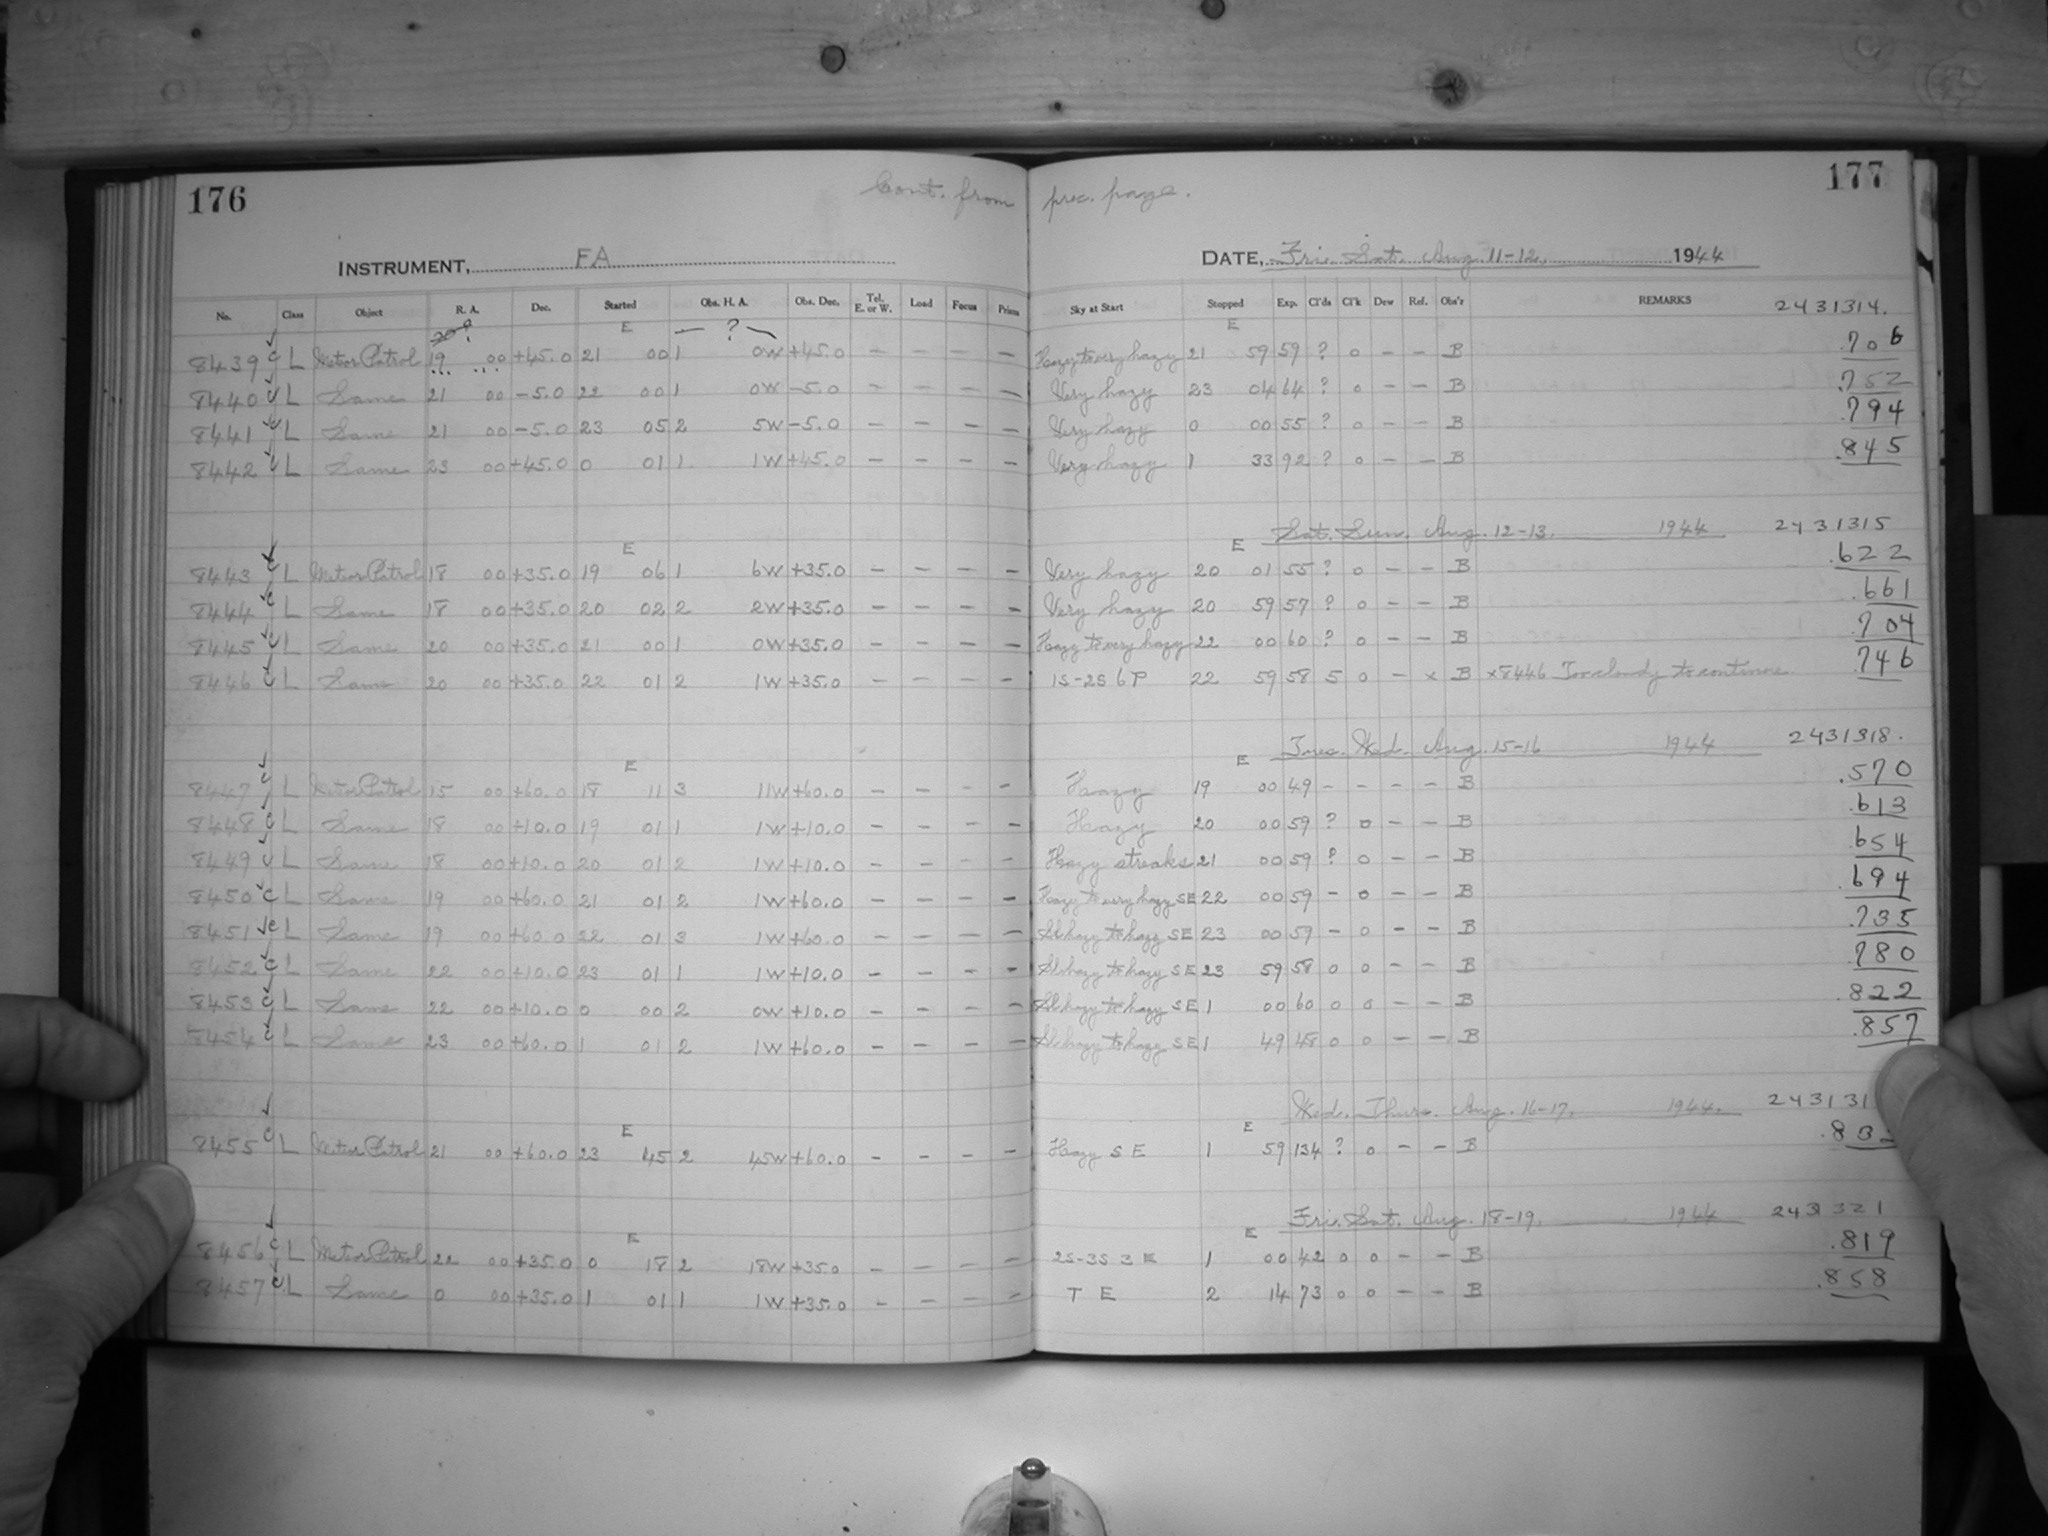 176
177
Cont. from prec. page.
INSTRUMENT, FA
DATE, Fri. Sat. Aug. 11-12, 1944
No. Class Object R. A. Dec. Started Obs. H. A. Obs. Dec. Tel. E. or W. Load Focus Prism Sky at Start Stopped Exp. Cl'ds Cl'k Dew Ref. Obs'r REMARKS 2431314.
20? E ? E
8439 c L Meteor Patrol 19 00 +45.0 21 00 1 0W +45.0 - - - - Hazy to very hazy 21 59 59 ? 0 - - B .706
8440 c L Same 21 00 -5.0 22 00 1 0W -5.0 - - - - Very hazy 23 04 64 ? 0 - - B .752
8441 c L Same 21 00 -5.0 23 05 2 5W -5.0 - - - - Very hazy 0 00 55 ? 0 - - B .794
8442 c L Same 23 00 +45.0 0 01 1 1W +45.0 - - - - Very hazy 1 33 92 ? 0 - - B .845
Sat. Sun. Aug. 12-13. 1944 2431315
E E
8443 c L Meteor Patrol 18 00 +35.0 19 06 1 6W +35.0 - - - - Very hazy 20 01 55 ? 0 - - B .622
8444 c L Same 18 00 +35.0 20 02 2 2W +35.0 - - - - Very hazy 20 59 57 ? 0 - - B .661
8445 c L Same 20 00 +35.0 21 00 1 0W +35.0 - - - - Hazy to very hazy 22 00 60 ? 0 - - B .704
8446 c L Same 20 00 +35.0 22 01 2 1W +35.0 - - - - 1S-2S 6P 22 59 58 5 0 - x B x8446 Too cloudy to continue .746
Tues. Wed. Aug. 15-16 1944 2431318.
E E
8447 c L Meteor Patrol 15 00 +60.0 18 11 3 11W +60.0 - - - - Hazy 19 00 49 - - - - B .570
8448 c L Same 18 00 +10.0 19 01 1 1W +10.0 - - - - Hazy 20 00 59 ? 0 - - B .613
8449 c L Same 18 00 +10.0 20 01 2 1W +10.0 - - - - Hazy streaks 21 00 59 ? 0 - - B .654
8450 c L Same 19 00 +60.0 21 01 2 1W +60.0 - - - - Hazy to very hazy SE 22 00 59 - 0 - - B .694
8451 c L Same 19 00 +60.0 22 01 3 1W +60.0 - - - - Sl. hazy to hazy SE 23 00 59 - 0 - - B .735
8452 c L Same 22 00 +10.0 23 01 1 1W +10.0 - - - - Sl. hazy to hazy SE 23 59 58 0 0 - - B .780
8453 c L Same 22 00 +10.0 0 00 2 0W +10.0 - - - - Sl. hazy to hazy SE 1 00 60 0 0 - - B .822
8454 c L Same 23 00 +60.0 1 01 2 1W +60.0 - - - - Sl. hazy to hazy SE 1 49 48 0 0 - - B .857
Wed. Thurs. Aug. 16-17. 1944. 243131
E E
8455 c L Meteor Patrol 21 00 +60.0 23 45 2 45W +60.0 - - - - Hazy SE 1 59 134 ? 0 - - B .83
Fri. Sat. Aug. 18-19. 1944 2431321
E E
8456 c L Meteor Patrol 22 00 +35.0 0 18 2 18W +35.0 - - - - 2S-3S 3 E 1 00 42 0 0 - - B .819
8457 c L Same 0 00 +35.0 1 01 1 1W +35.0 - - - - T E 2 14 73 0 0 - - B .858